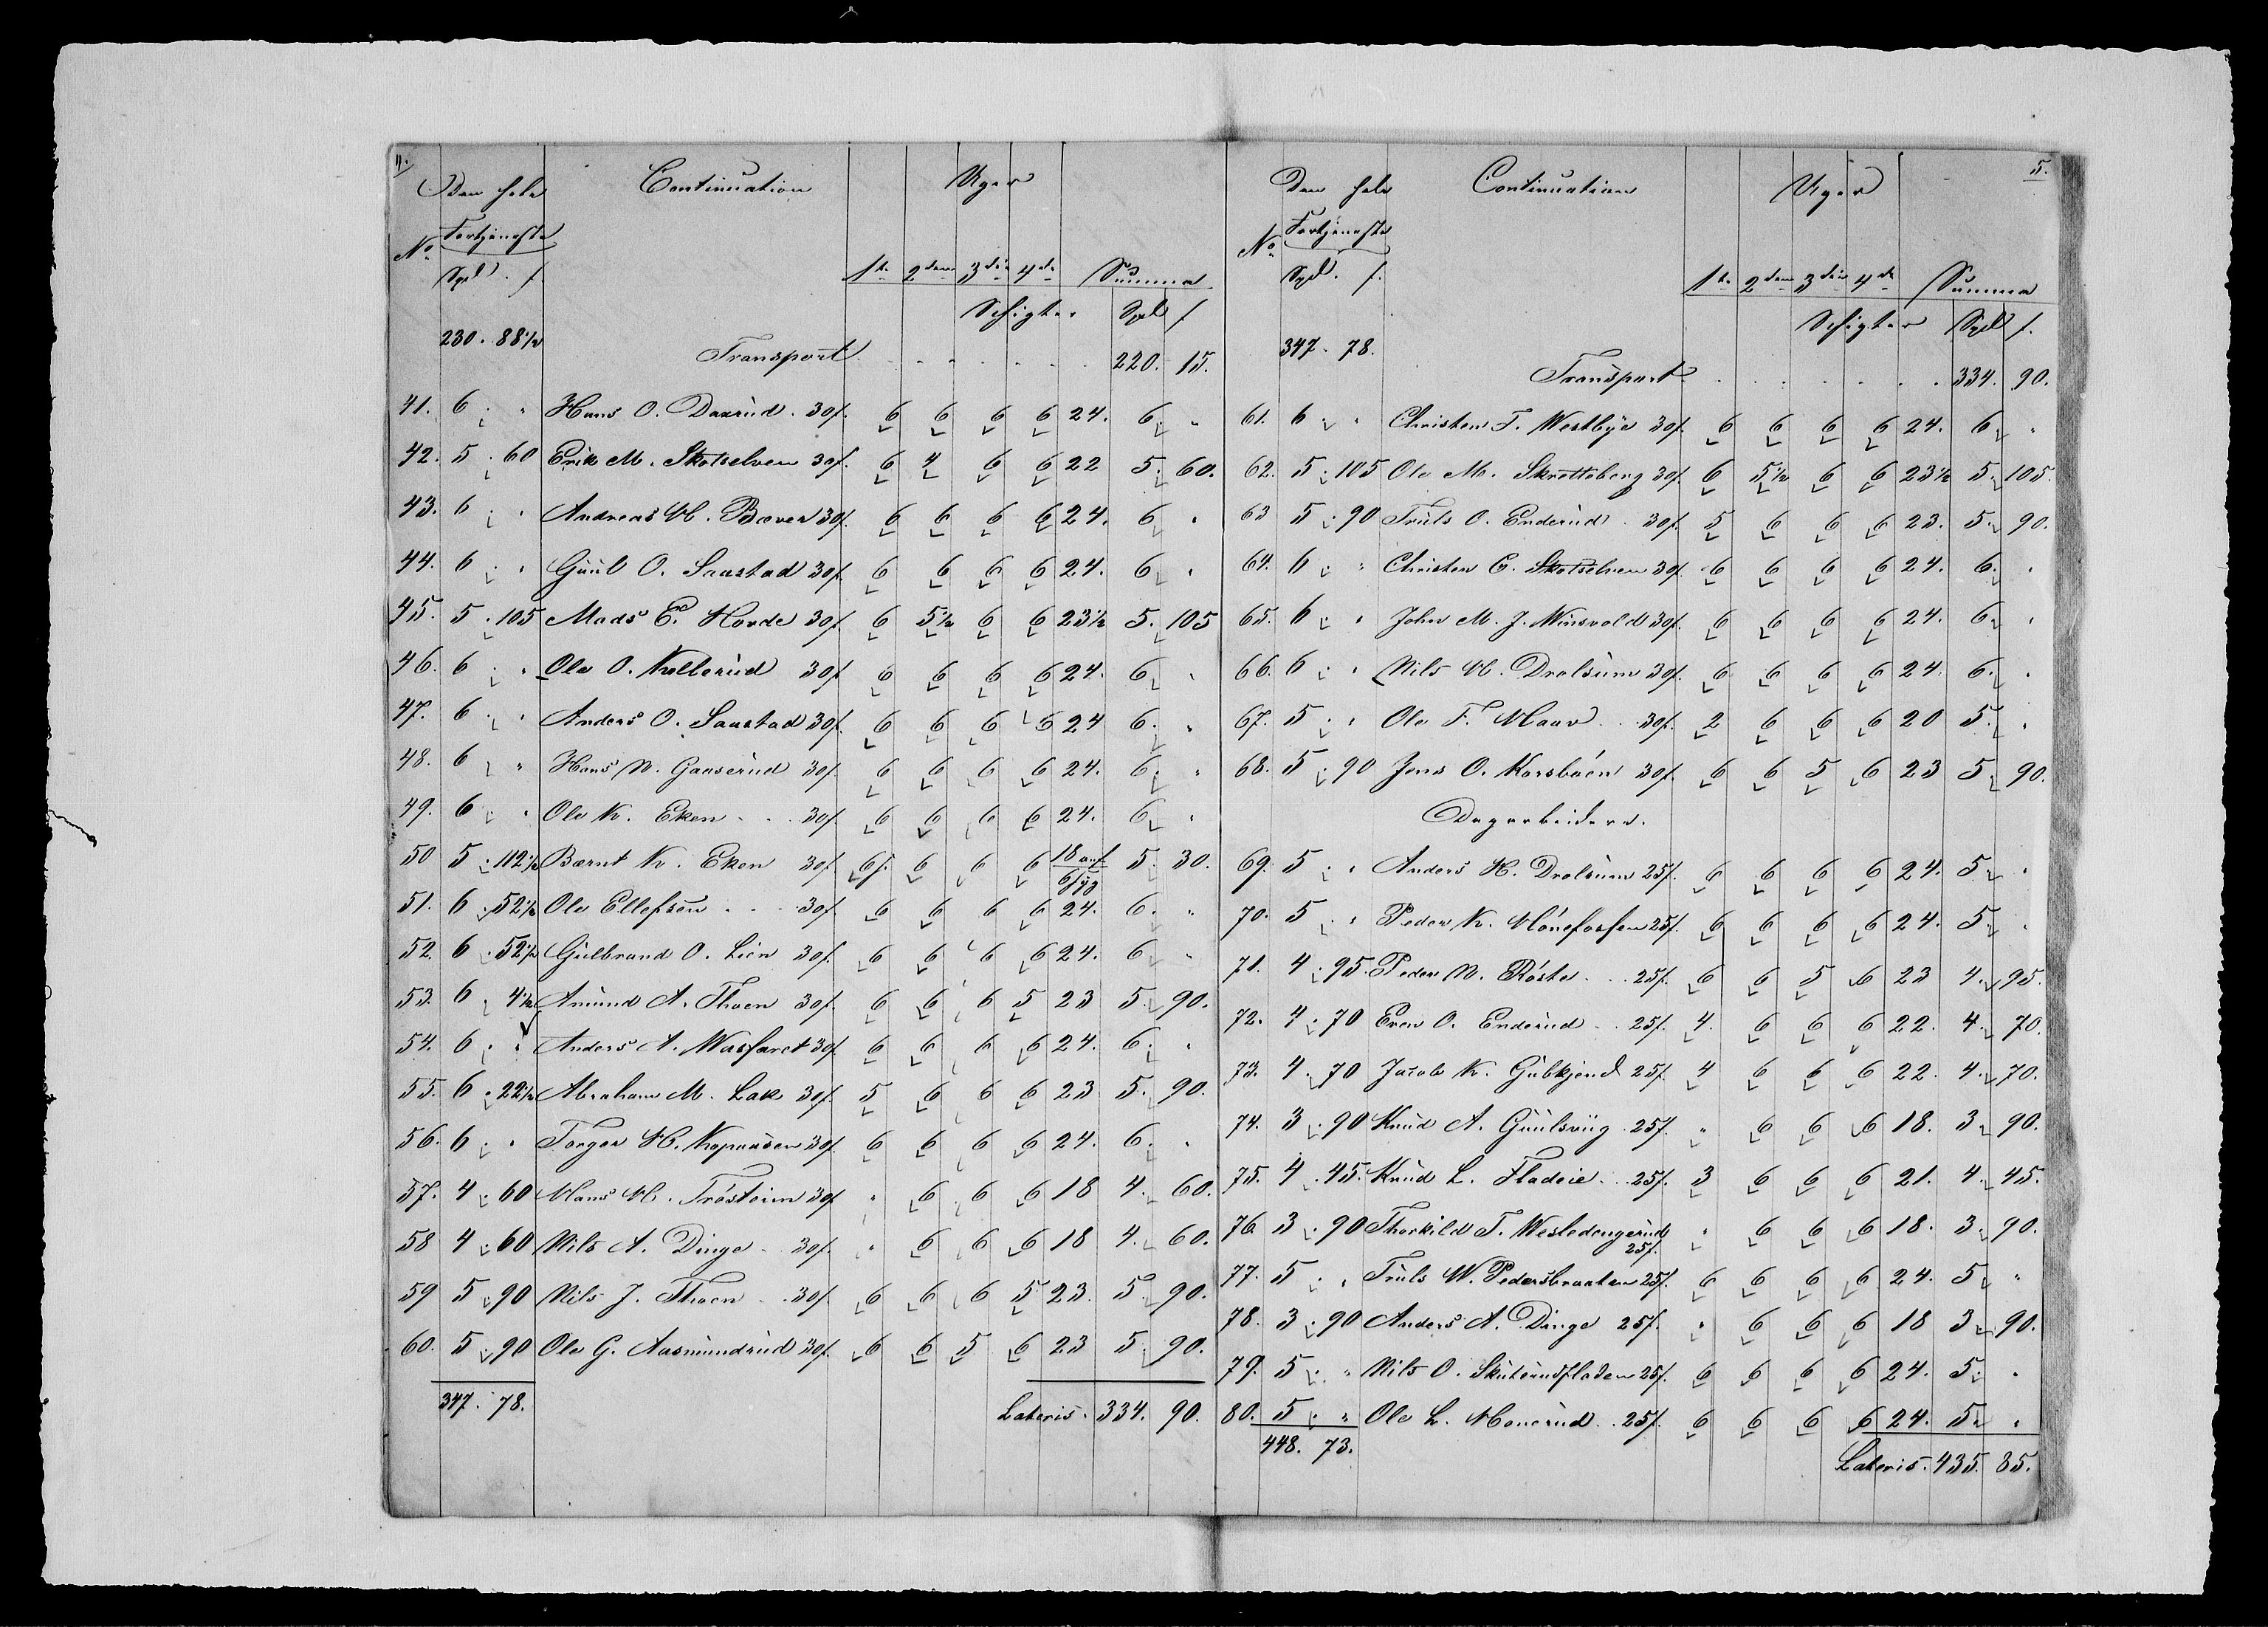 4.
Den hele Continuation Uger
No Fortjeneste
Spd. ſ. 1te 2den 3die 4de Summa
Schigter Spd ſ
230. 88½ Transport 220. 15.
41. 6 . " Hans O. Daarud. 30ſ. 6 6 6 6 24. 6. "
42. 5 . 60 Erik M. Skotselven 30ſ. 6 4 6 6 22 5. 60.
43. 6 . " Andreas H. Bæver 30ſ. 6 6 6 6 24. 6 "
44. 6 . " Guul O. Saastad 30ſ. 6 6 6 6 24. 6 "
45. 5 . 105 Mads E. Hovde 30ſ. 6 5½ 6 6 23½ 5. 105
46. 6 . " Ole O. Kolberud 30ſ 6 6 6 6 24. 6 "
47. 6 . " Anders O. Saastad 30ſ. 6 6 6 6 24 6. "
48. 6 " Hans N. Gaaserud 30ſ. 6 6 6 6 24. 6. "
49. 6 . " Ole K. Eken 30ſ 6 6 6 6 24. 6 "
50 5 . 112½ Bærnt K. Eken 30ſ 6ſ. 6 6 6 18 a.ſ 5. 30.
51. 6 . 52½ Ole Ellefsen 30ſ. 6 6 6 6 24. 6. "
52. 6 . 52½ Gulbrand O. Lien 30ſ. 6 6 6 6 24. 6 "
53. 6 . 4½ Amund A. Thoen 30ſ. 6 6 6 5 23 5. 90.
54. 6 . " Anders A. Wasfaret 30ſ. 6 6 6 6 24. 6. "
55. 6 . 22½ Abraham M. Lak 30ſ. 5 6 6 6 23 5. 90.
56. 6 . " Torger H. Kopaasen 30ſ. 6 6 6 6 24. 6. "
57. 4 . 60 Hans H. Trösteim 30ſ " 6 6 6 18 4. 60.
58 4 . 60 Nils A. Dinge 30ſ. " 6 6 6 18 4. 60.
59 5 . 90 Nils J. Thoen 30ſ. 6 6 6 5 23 5. 90.
60. 5 . 90 Ole G. Aasmundrud 30ſ. 6 6 5 6 23 5. 90.
347. 78. Lateris. 334. 90.
5.
Den hele Continuation Uger
No Fortjeneste
Spd. ſ. 1te 2den 3die 4de Summa
Schigter Spd ſ.
347. 78. Transport 334. 90.
61. 6 . " Christen F. Westbye 30ſ. 6 6 6 6 24. 6 "
62. 5 . 105 Ole M. Skretteberg 30ſ. 6 5½ 6 6 23½ 5. 105.
63 5 . 90 Truls O. Enderud 30ſ. 5 6 6 6 23. 5. 90.
64. 6 . " Christen E. Skotselven 30ſ. 6 6 6 6 24. 6. "
65. 6 . " John M. J. Winsvold 30ſ. 6 6 6 6 24. 6. "
66. 6 . " Nils H. Drolsum 30ſ. 6 6 6 6 24. 6. "
67. 5 . " Ole F. Maav 30ſ. 2 6 6 6 20 5. "
68. 5 . 90 Jens O. Korsbøen 30ſ. 6 6 5 6 23 5 90.
Dagarbeidere.
69. 5 . " Anders H. Drolsum 25ſ. 6 6 6 6 24. 5 "
70. 5 . " Peder K. Hönefossen 25ſ. 6 6 6 6 24. 5 "
71. 4 . 95. Peder N. Röste 25ſ. 6 6 5 6 23 4. 95.
72. 4 . 70 Even O. Enderud 25ſ. 4. 6 6 6 22. 4. 70.
73. 4 . 70 Jacob K. Gubkjend 25ſ. 4 6 6 6 22. 4. 70.
74. 3 . 90 Knud A. Guulsviig 25ſ. " 6 6 6 18. 3. 90.
75. 4 . 45. Knud L. Fladeie 25ſ. 3 6 6 6 21. 4. 45.
76. 3 . 90 Thorkild T. Wesledengerud 25ſ. " 6 6 6 18. 3. 90.
77. 5 . " Truls W. Pedersbraaten 25ſ. 6 6 6 6 24. 5 "
78. 3 . 90 Anders A. Dinge 25ſ. " 6 6 6 18 3. 90.
79. 5 . " Nils O. Skuterudfladen 25ſ. 6 6 6 6 24. 5. "
80. 5 . " Ole L. Monerud 25ſ. 6 6 6 6 24. 5. "
448. 73. Lateris. 435. 85.